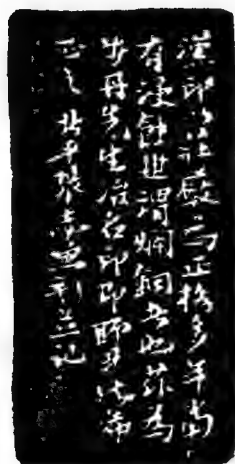 漢印以莊嚴為正格多年尚
有浸蝕世謂爛銅者也茲為
少丹先生治名印即師其法希
正之 壯年張 刻並記